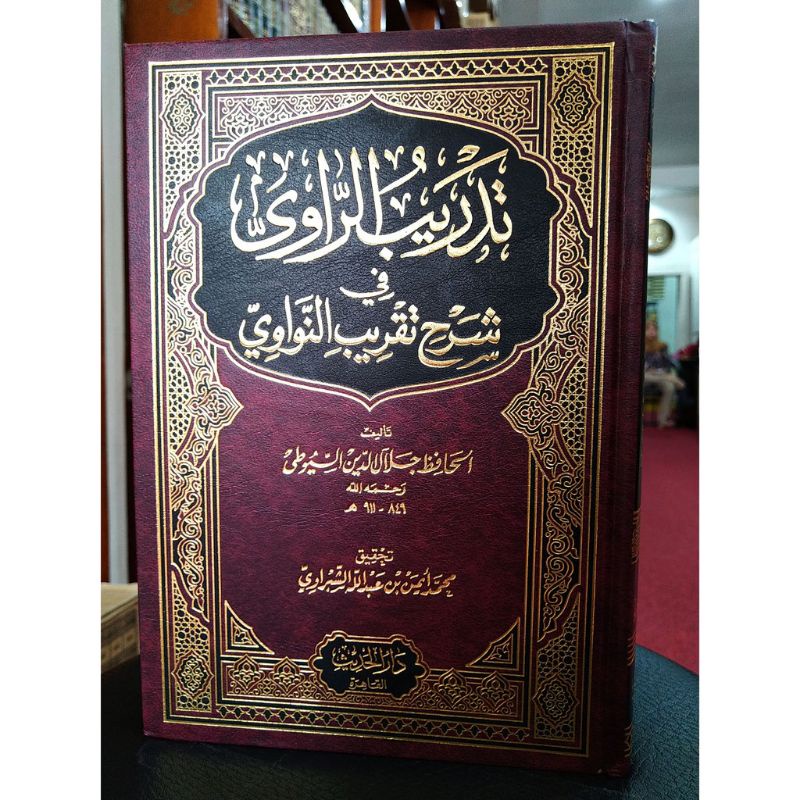 تدريب الراوى
في
شرح تقريب النواوي
تأليف
الحافظ جلال الدين السيوطى
رحمه الله
٨٤٩ - ٩١١ هـ
تحقيق
محمد أيمن بن عبد الله الشبراوي
دار الحديث
القاهرة